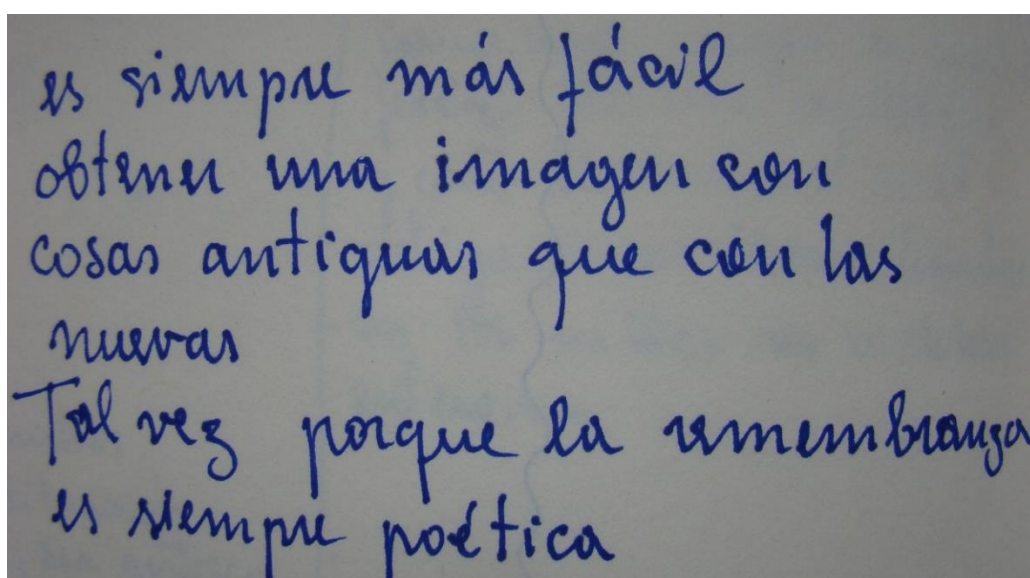 es siempre más fácil
obtener una imagen con
cosas antiguas que con las
nuevas
Tal vez porque la remembranza
es siempre poética